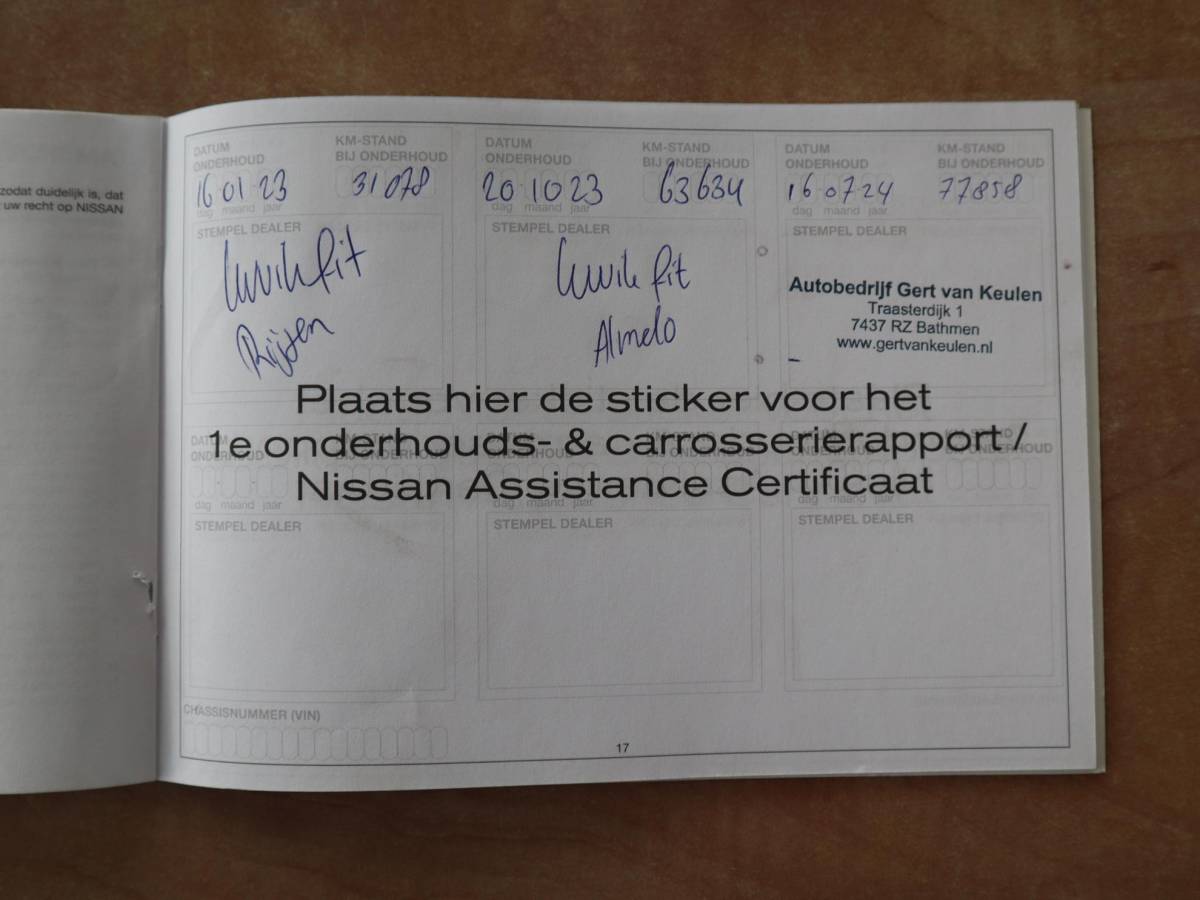 zodat duidelijk is, dat
uw recht op NISSAN
DATUM ONDERHOUD
KM-STAND BIJ ONDERHOUD
16 01 23
31078
dag maand jaar
STEMPEL DEALER
Kwik fit
Rijssen
DATUM ONDERHOUD
KM-STAND BIJ ONDERHOUD
20 10 23
63634
dag maand jaar
STEMPEL DEALER
Kwik fit
Almelo
DATUM ONDERHOUD
KM-STAND BIJ ONDERHOUD
16 07 24
77858
dag maand jaar
STEMPEL DEALER
Autobedrijf Gert van Keulen
Traasterdijk 1
7437 RZ Bathmen
www.gertvankeulen.nl
Plaats hier de sticker voor het
1e onderhouds- & carrosserierapport /
Nissan Assistance Certificaat
DATUM ONDERHOUD
KM-STAND BIJ ONDERHOUD
dag maand jaar
STEMPEL DEALER
DATUM ONDERHOUD
KM-STAND BIJ ONDERHOUD
dag maand jaar
STEMPEL DEALER
DATUM ONDERHOUD
KM-STAND BIJ ONDERHOUD
dag maand jaar
STEMPEL DEALER
CHASSISNUMMER (VIN)
17